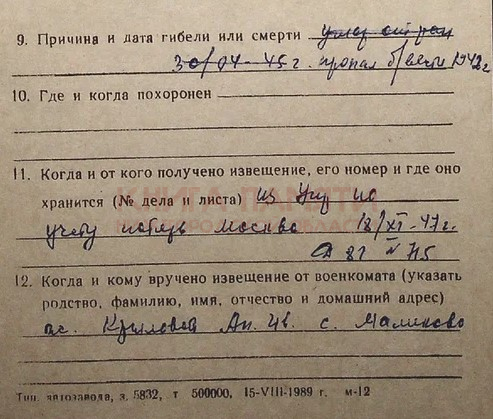 9. Причина и дата гибели или смерти умер от ран
30/04-45 г. пропал б/вести 1942 г
10. Где и когда похоронен
11. Когда и от кого получено извещение, его номер и где оно
хранится (№ дела и листа) из Упр по
КНИГА ПАМЯТИ
учету потерь Москва 18/XI-47г.
НИЖЕГОРОДСКОЙ ОБЛАСТИ
д 81 № 715
12. Когда и кому вручено извещение от военкомата (указать
родство, фамилию, имя, отчество и домашний адрес)
Крылова Ан. Ив. с. Маликово
Тип. автозавода, з. 5832, т 500000, 15-VIII-1989 г. м-12